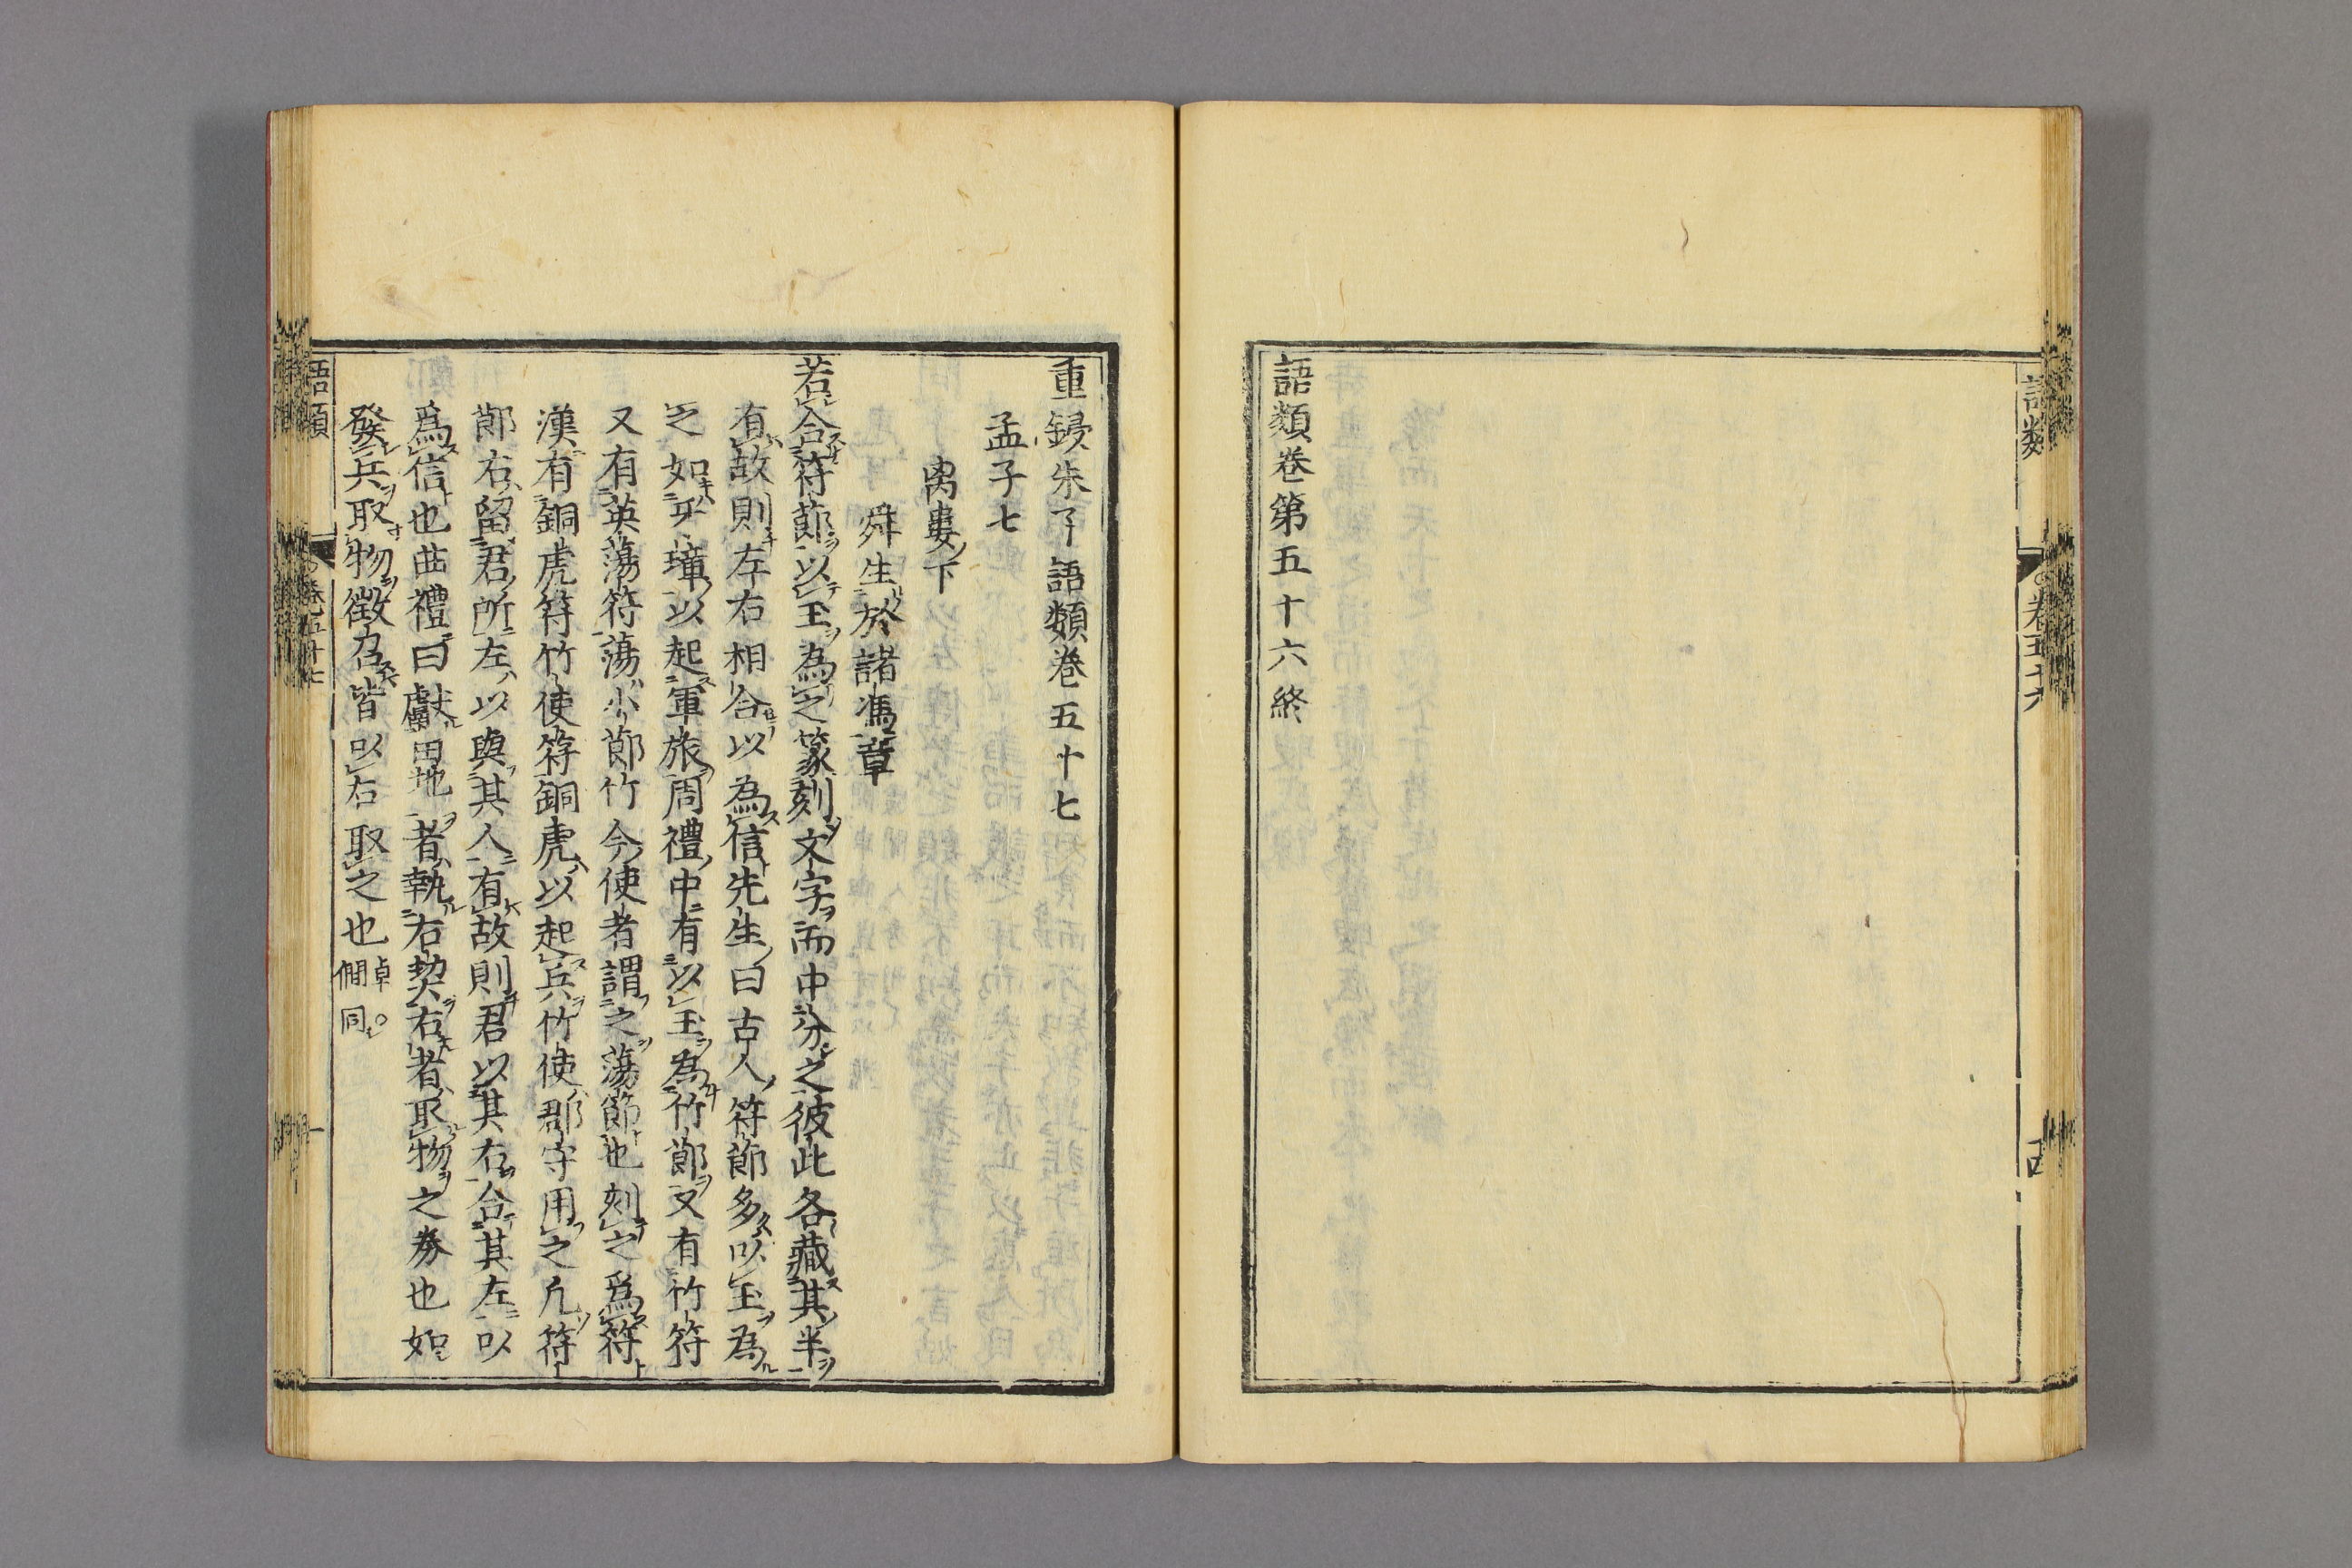 語類
卷五十六
語類卷第五十六終
重鋟朱子語類卷五十七
孟子七
离婁下
舜生於諸馮章
若合符節以玉為之篆刻文字而中分之彼此各藏其半
有故則左右相合以為信先生曰古人符節多以玉為
之如牙璋以起軍旅周禮中有以玉為竹節又有竹符
又有英蕩符蕩小節竹今使者謂之蕩節也刻之爲符
漢有銅虎符竹使符銅虎以起兵竹使郡守用之凡符
節右留君所左以與其人有故則君以其右合其左以
爲信也曲禮曰獻田地者執右契右者取物之券也如
發兵取物徵召皆以右取之也卓○僩同
語類
卷五十七
一